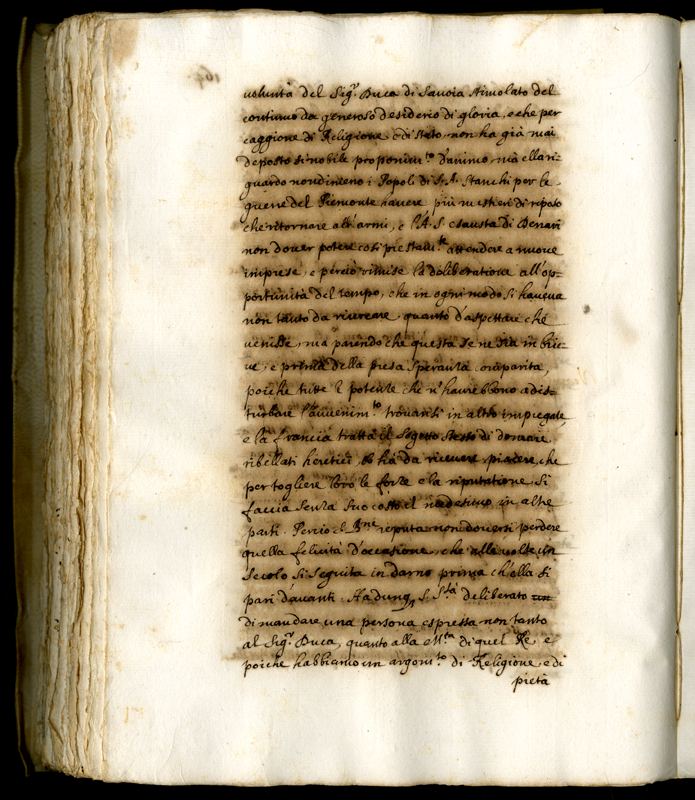 voluntà del Sig.r Duca di Savoia stimolato del
continuo da generoso desiderio di gloria, e che per
caggione di Religione, ò di stato non ha già mai
deposto si nobile proponim.to d'animo, mà ella ri-
guardo nondimeno i Popoli di S. A. Stanchi per le
guerre del Piemonte havere più mestieri di riposo
che ritornare all'armi, e l'A. S. esausta di Denari
non dover potere così prestam.te attendere a nuove
imprese, e perciò rimise la deliberatione all'op-
portunità del tempo, che in ogni modo si haveva
non tanto da ricercare, quanto d'aspettare che
venisse, mà parendo che questa se ne sia in bre-
ve, e prima della presa speranza comparita,
poiche tutte le potenze che n'haverebbono à dis-
turbare l'avvenim.to trovansi in altro impiegate,
e la Francia tratta il sogetto stesso di domare
ribellati heretici, hà da ricevere piacere, che
per togliere loro le forze e la riputatione, si
faccia senza suo costo il medesimo in altre
parti. Perciò N. Sig.ne reputa non doversi perdere
quella felicità d'occasione, che alle volte un
secolo si seguita indarno prima ch'ella si
pari davanti. Hà dunq. S. S.tà deliberato
di mandare una persona espressa non tanto
al Sig.r Duca, quanto alla M.tà di quel Rè, e
poiche habbiamo un argom.to di Religione, e di
pietà